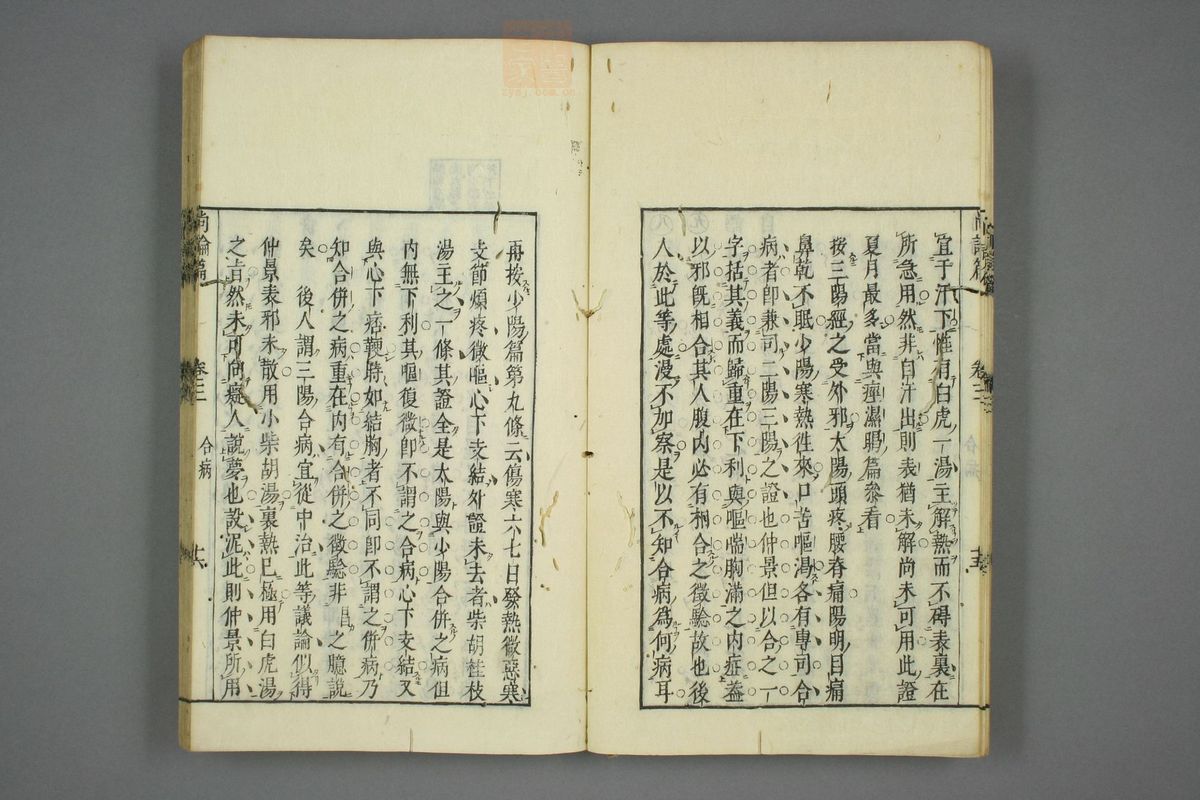 宜于汗下惟有白虎一湯主解熱而不碍表裏在
所急用然非自汗出則表猶未解尚未可用此證
夏月最多當與痙濕暍篇參看
按三陽經之受外邪太陽頭疼腰脊痛陽明目痛
鼻乾不眠少陽寒熱徃來口苦嘔渴各有專司合
病者卽兼司二陽三陽之證也仲景但以合之一
字括其義而歸重在下利與嘔喘胸滿之内症葢
以邪旣相合其人腹内必有相合之徵驗故也後
人於此等處漫不加察是以不知合病爲何病耳
尚論篇
卷三
合病
十五
再按少陽篇第九條云傷寒六七日發熱微惡寒
支節煩疼微嘔心下支結外證未去者柴胡桂枝
湯主之一條其證全是太陽與少陽合併之病但
内無下利其嘔復微卽不謂之合病心下支結又
與心下痞鞕時如結胸者不同卽不謂之併病乃
知合併之病重在内有合併之徵驗非昌之臆說
矣　後人謂三陽合病宜從中治此等議論似得
仲景表邪未散用小柴胡湯裏熱已極用白虎湯
之肯然未可向癡人說夢也設泥此則仲景所用
尚論篇
卷三
合病
十六